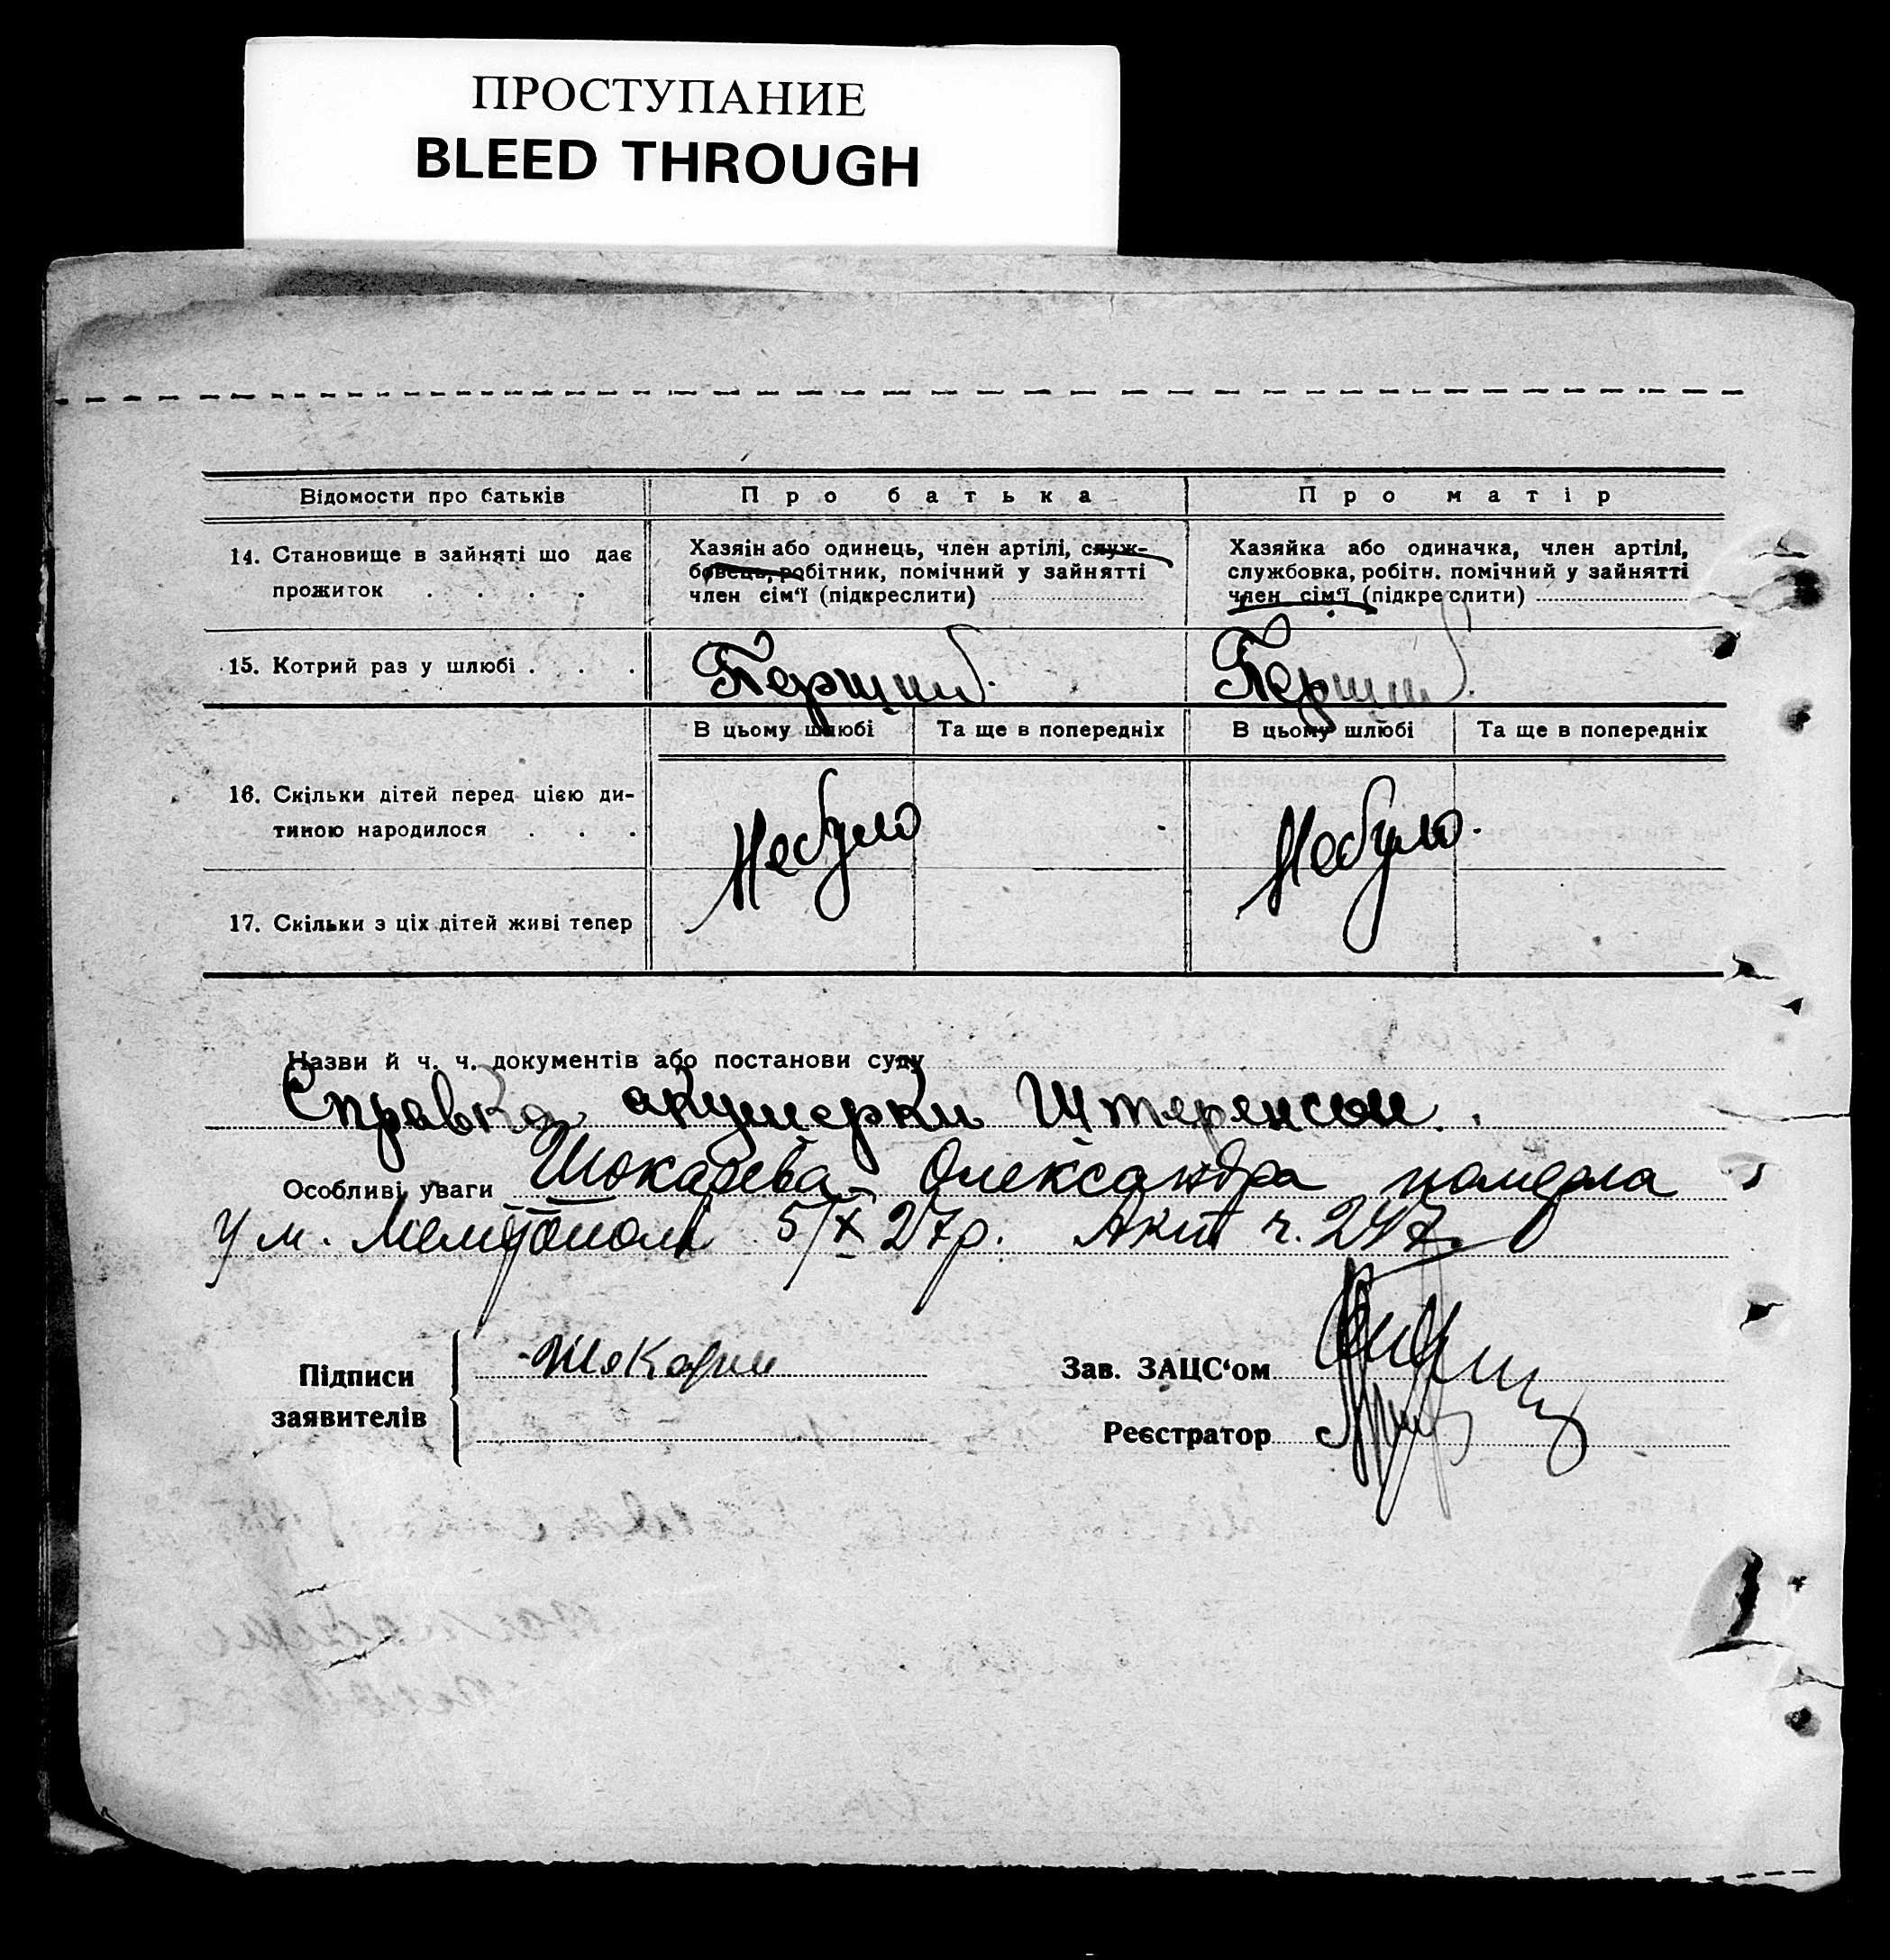 ПРОСТУПАНИЕ
BLEED THROUGH
Відомости про батьків
Про батька
Про матір
14. Становище в зайняті що дає
прожиток . . . .
Хазяін або одинець, член артілі, служ-
бовець, робітник, помічний у зайнятті
член сім'ї (підкреслити)
Хазяйка або одиначка, член артілі,
службовка, робітн. помічний у зайнятті
член сім'ї (підкреслити)
15. Котрий раз у шлюбі . . .
Перший.
Перший.
В цьому шлюбі
Та ще в попередніх
В цьому шлюбі
Та ще в попередніх
16. Скільки дітей перед цією ди-
тиною народилося . . .
Небуло
Небуло.
17. Скільки з ціх дітей живі тепер
Назви й ч. ч. документів або постанови суду
Справка акушерки Штеренсон.
Особливі уваги Шокарева Олександра померла
у м. Мелітополі 5/X 27р. Акт ч. 247.
Підписи
заявителів
Зав. ЗАЦС'ом
Реєстратор